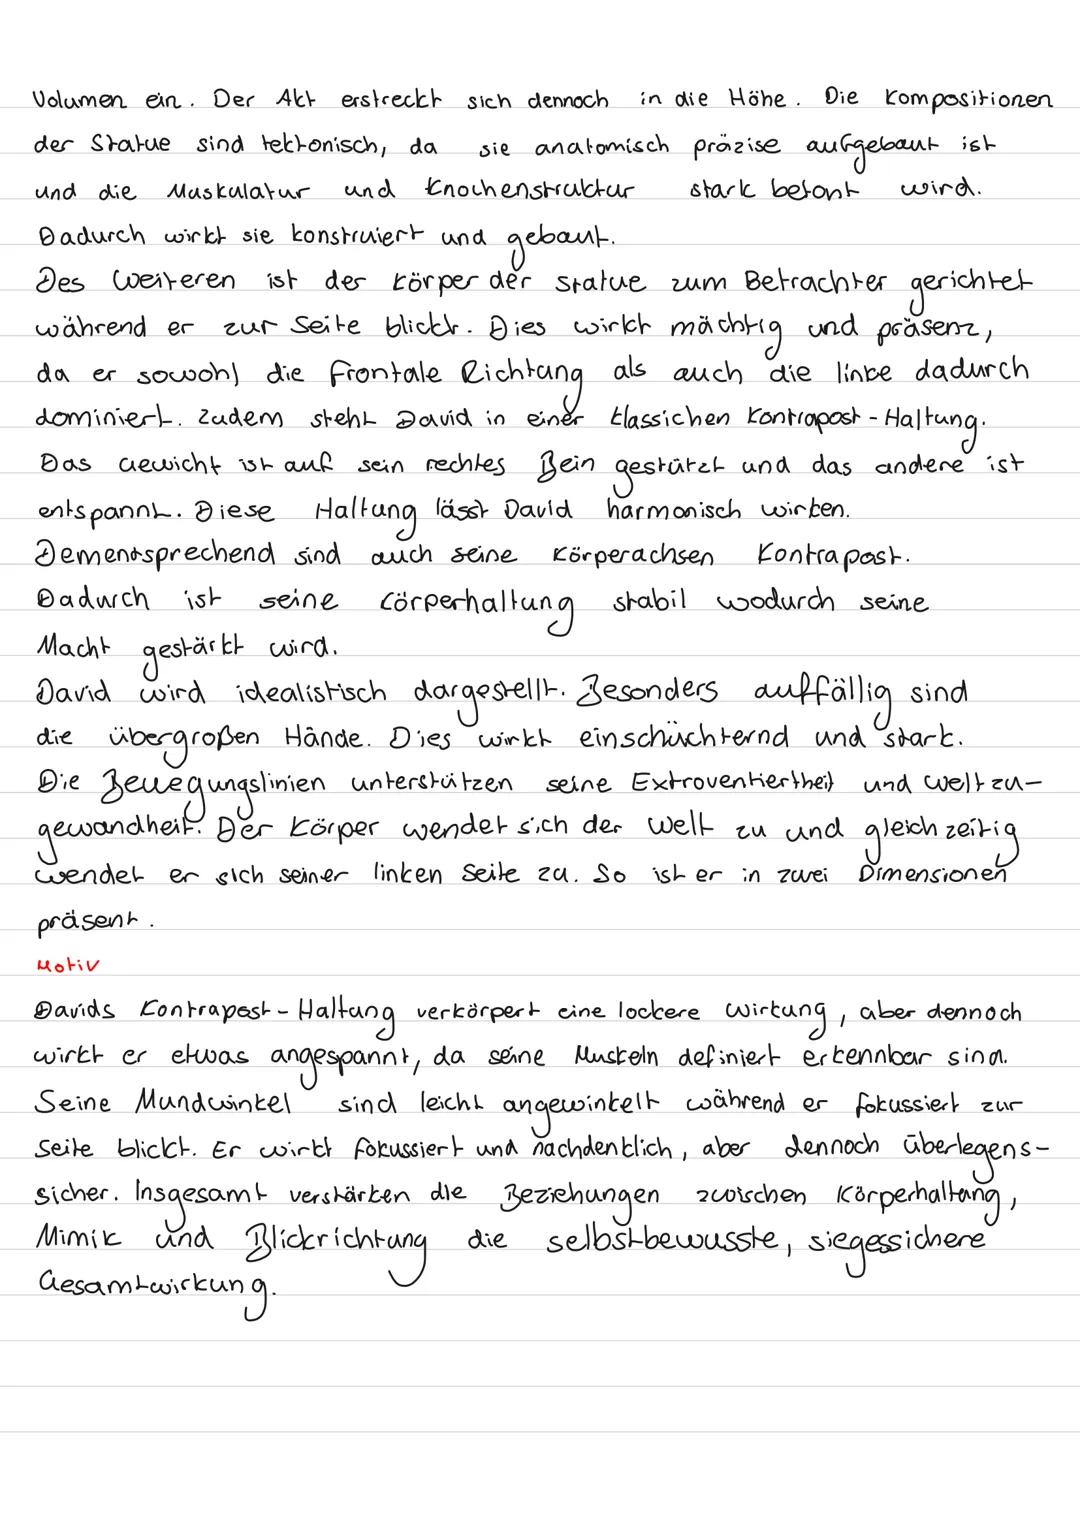 Volumen ein. Der Akt erstreckt sich dennoch in die Höhe. Die Kompositionen
der Statue sind tektonisch, da sie anatomisch präzise aufgebaut ist
und die Muskulatur und Knochenstruktur stark betont wird.
Dadurch wirkt sie konstruiert und gebaut.
Des Weiteren ist der Körper der Statue zum Betrachter gerichtet
während er zur Seite blickt. Dies wirkt mächtig und präsenz,
da er sowohl die frontale Richtung als auch die linke dadurch
dominiert. Zudem steht David in einer klassichen Kontrapost-Haltung.
Das Gewicht ist auf sein rechtes Bein gestützt und das andere ist
entspannt. Diese Haltung lässt David harmonisch wirken.
Dementsprechend sind auch seine Körperachsen Kontrapost.
Dadurch ist seine Körperhaltung stabil wodurch seine
Macht gestärkt wird.
David wird idealistisch dargestellt. Besonders auffällig sind
die übergroßen Hände. Dies wirkt einschüchternd und stark.
Die Bewegungslinien unterstützen seine Extroventiertheit und weltzu-
gewandheit. Der Körper wendet sich der Welt zu und gleichzeitig
wendet er sich seiner linken Seite zu. So ist er in zwei Dimensionen
präsent.
Motiv
Davids Kontrapost-Haltung verkörpert eine lockere Wirkung, aber dennoch
wirkt er etwas angespannt, da seine Muskeln definiert erkennbar sind.
Seine Mundwinkel sind leicht angewinkelt während er fokussiert zur
Seite blickt. Er wirkt fokussiert und nachdenklich, aber dennoch überlegens-
sicher. Insgesamt verstärken die Beziehungen zwischen Körperhaltung,
Mimik und Blickrichtung die selbstbewusste, siegessichere
Gesamtwirkung.